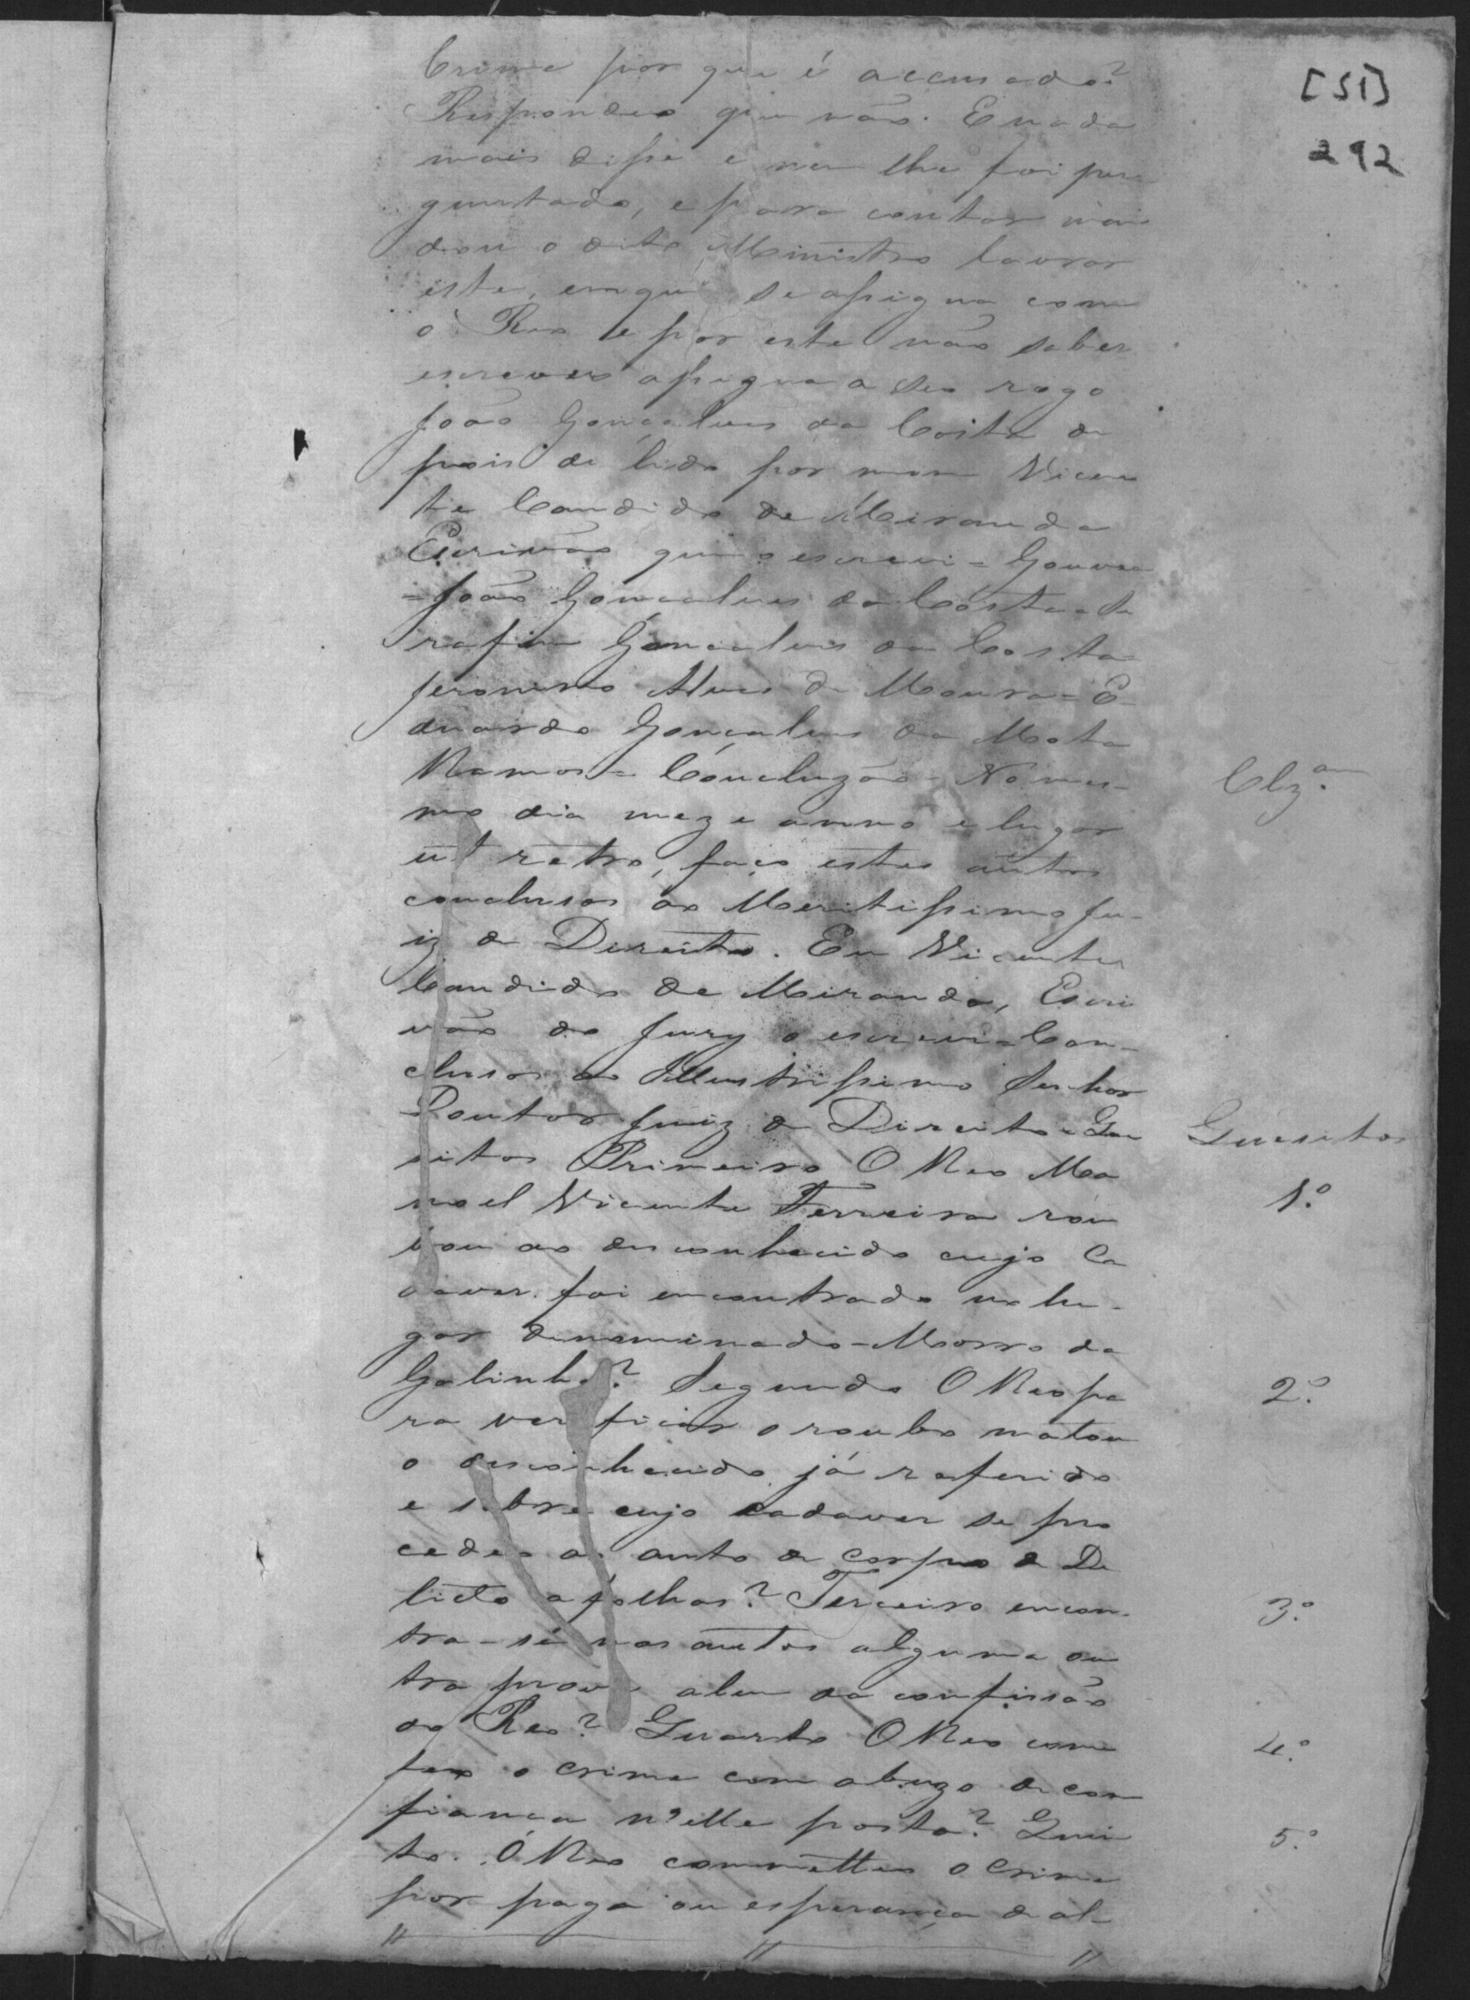 [51]
292
Crime por que é accusado?
Respondeo que não. E nada
mais disse e nem lhe foi per
guntado, e para constar man
dou o dito Ministro lavrar
este, em que se assigna com
o Reo e por este não saber
escrever assigna a seo rogo
João Gonçalves da Costa de
pois de lido por mim Vicen
te Candido de Miranda
Escrivão que o escrevi = Gouvea
= João Gonçalves da Costa = Se
rafim Gonçalves da Costa
Jeronimo Alves de Moura = E
duardo Gonçalves da Mota
Ramos = Concluzão = No mes-
mo dia mez e anno e lugar
ut retro, faço estes autos
conclusos ao Meritissimo Ju-
iz de Direito. Eu Vicente
Candido de Miranda, Escri
vão do Jury o escrevi = Con-
clusos ao Illustrissimo Senhor
Doutor Juiz de Direito = Que
sitos Primeiro O Reo Ma
noel Vicente Ferreira rou
bou ao desconhecido cujo Ca
daver foi encontrado no lu-
gar denominado = Morro da
Galinha? Segundo O Reo pa
ra verificar o roubo matou
o desconhecido já referido
e sobre cujo cadaver se pro
cedeo ao auto de corpo de De
licto a folhas? Terceiro encon-
tra-se nos autos alguma ou
tra prova alem da confissão
do Reo? Quarto O Reo come
teo o crime com abuzo de con
fiança n'elle posta? Quin
to. O Reo commetteo o crime
por paga ou esperança de al-
Clz.am
Quesitos
1.º
2.º
3.º
4.º
5.º